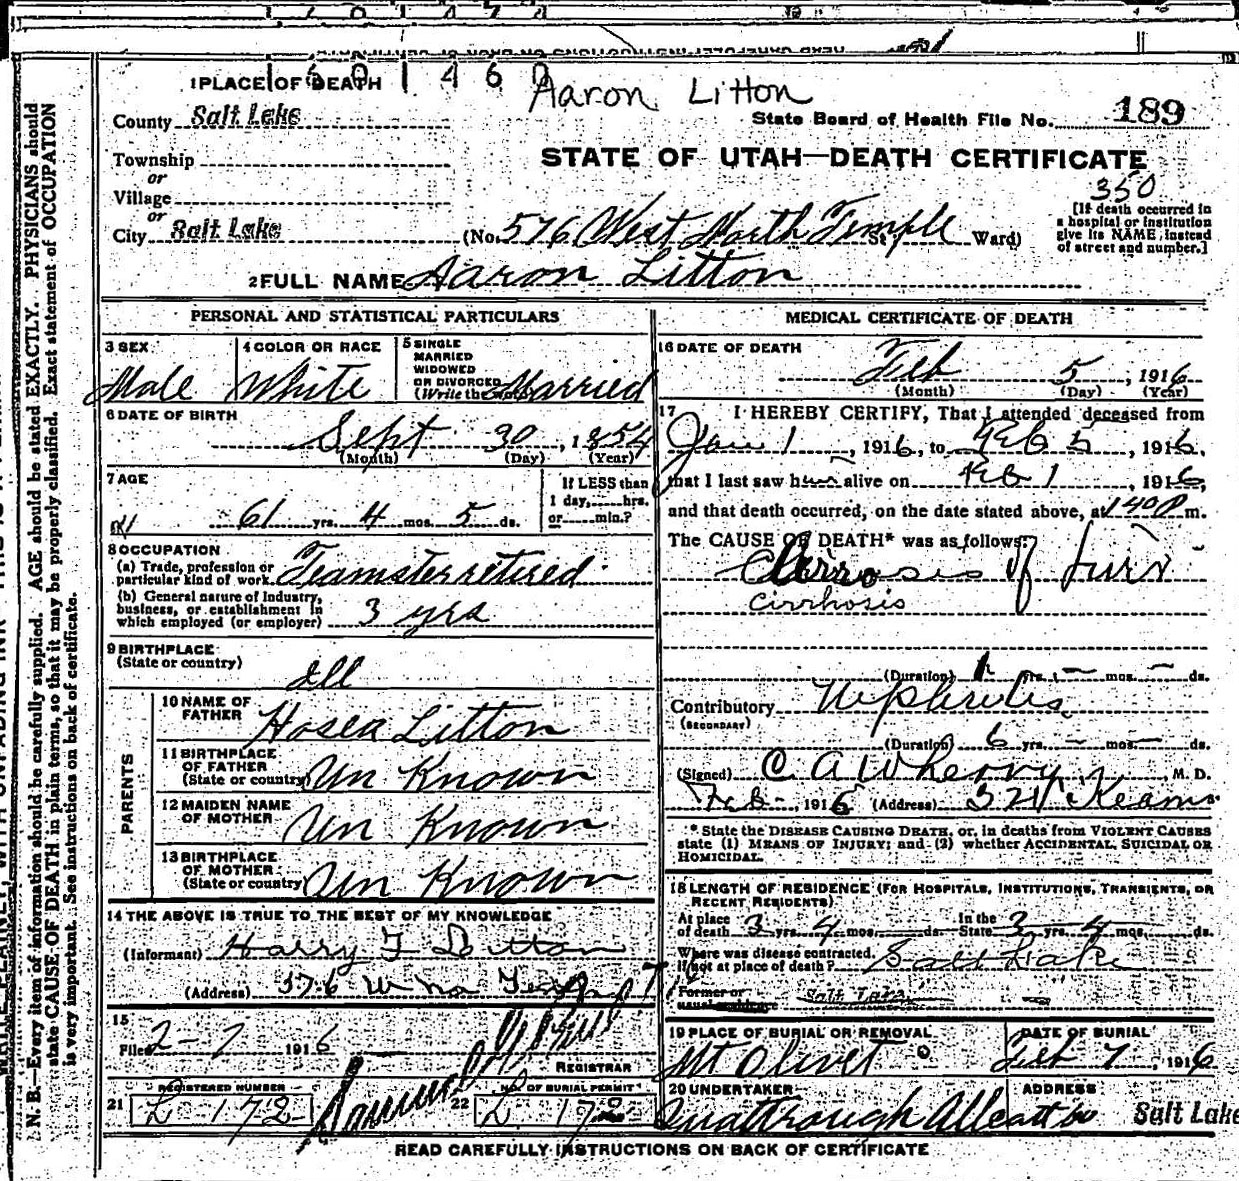 1 6 0 1 4 6 0
Aaron Litton
1 PLACE OF DEATH
County Salt Lake
State Board of Health File No. 189
Township
or
Village
or
City Salt Lake
STATE OF UTAH—DEATH CERTIFICATE
350
(No. 576 West North Temple St Ward)
[If death occurred in
a hospital or institution
give its NAME instead
of street and number.]
2 FULL NAME Aaron Litton
PERSONAL AND STATISTICAL PARTICULARS
3 SEX
Male
4 COLOR OR RACE
White
5 SINGLE
MARRIED
WIDOWED
OR DIVORCED
(Write the word) Married
6 DATE OF BIRTH
Sept 30, 1854
(Month) (Day) (Year)
7 AGE
61 yrs. 4 mos. 5 ds.
If LESS than
1 day, hrs.
or min.?
8 OCCUPATION
(a) Trade, profession or
particular kind of work Teamster retired
(b) General nature of industry,
business, or establishment in
which employed (or employer) 3 yrs
9 BIRTHPLACE
(State or country)
Ill
PARENTS
10 NAME OF
FATHER
Hosea Litton
11 BIRTHPLACE
OF FATHER
(State or country) Un Known
12 MAIDEN NAME
OF MOTHER
Un Known
13 BIRTHPLACE
OF MOTHER
(State or country) Un Known
14 THE ABOVE IS TRUE TO THE BEST OF MY KNOWLEDGE
(Informant) Harry F Litton
(Address) 576 W No Temp
15
Filed 2-7 1916
REGISTRAR
REGISTERED NUMBER
21 L 172
NO. OF BURIAL PERMIT
22 L 172
MEDICAL CERTIFICATE OF DEATH
16 DATE OF DEATH
Feb 5, 1916
(Month) (Day) (Year)
17 I HEREBY CERTIFY, That I attended deceased from
Jan 1, 1916, to Feb 5, 1916,
that I last saw him alive on Feb 1, 1916,
and that death occurred, on the date stated above, at 140 P m.
The CAUSE OF DEATH* was as follows:
Cirrosis of Liver
cirrhosis
(Duration) yrs. mos. ds.
Contributory Nephritis
(SECONDARY)
(Duration) 6 yrs. mos. ds.
(Signed) C A Wherry, M. D.
Feb, 1916 (Address) Kearns
* State the DISEASE CAUSING DEATH, or, in deaths from VIOLENT CAUSES
state (1) MEANS OF INJURY; and (2) whether ACCIDENTAL, SUICIDAL OR
HOMICIDAL.
18 LENGTH OF RESIDENCE (FOR HOSPITALS, INSTITUTIONS, TRANSIENTS, OR
RECENT RESIDENTS)
At place
of death 3 yrs. 4 mos. ds.
In the
State 3 yrs. 4 mos. ds.
Where was disease contracted,
if not at place of death? Salt Lake
Former or
usual residence Salt Lake
19 PLACE OF BURIAL OR REMOVAL
Mt Olivet
DATE OF BURIAL
Feb 7, 1916
20 UNDERTAKER
ADDRESS
Salt Lake
READ CAREFULLY INSTRUCTIONS ON BACK OF CERTIFICATE
N. B.—Every item of information should be carefully supplied. AGE should be stated EXACTLY. PHYSICIANS should
state CAUSE OF DEATH in plain terms, so that it may be properly classified. Exact statement of OCCUPATION
is very important. See instructions on back of certificate.